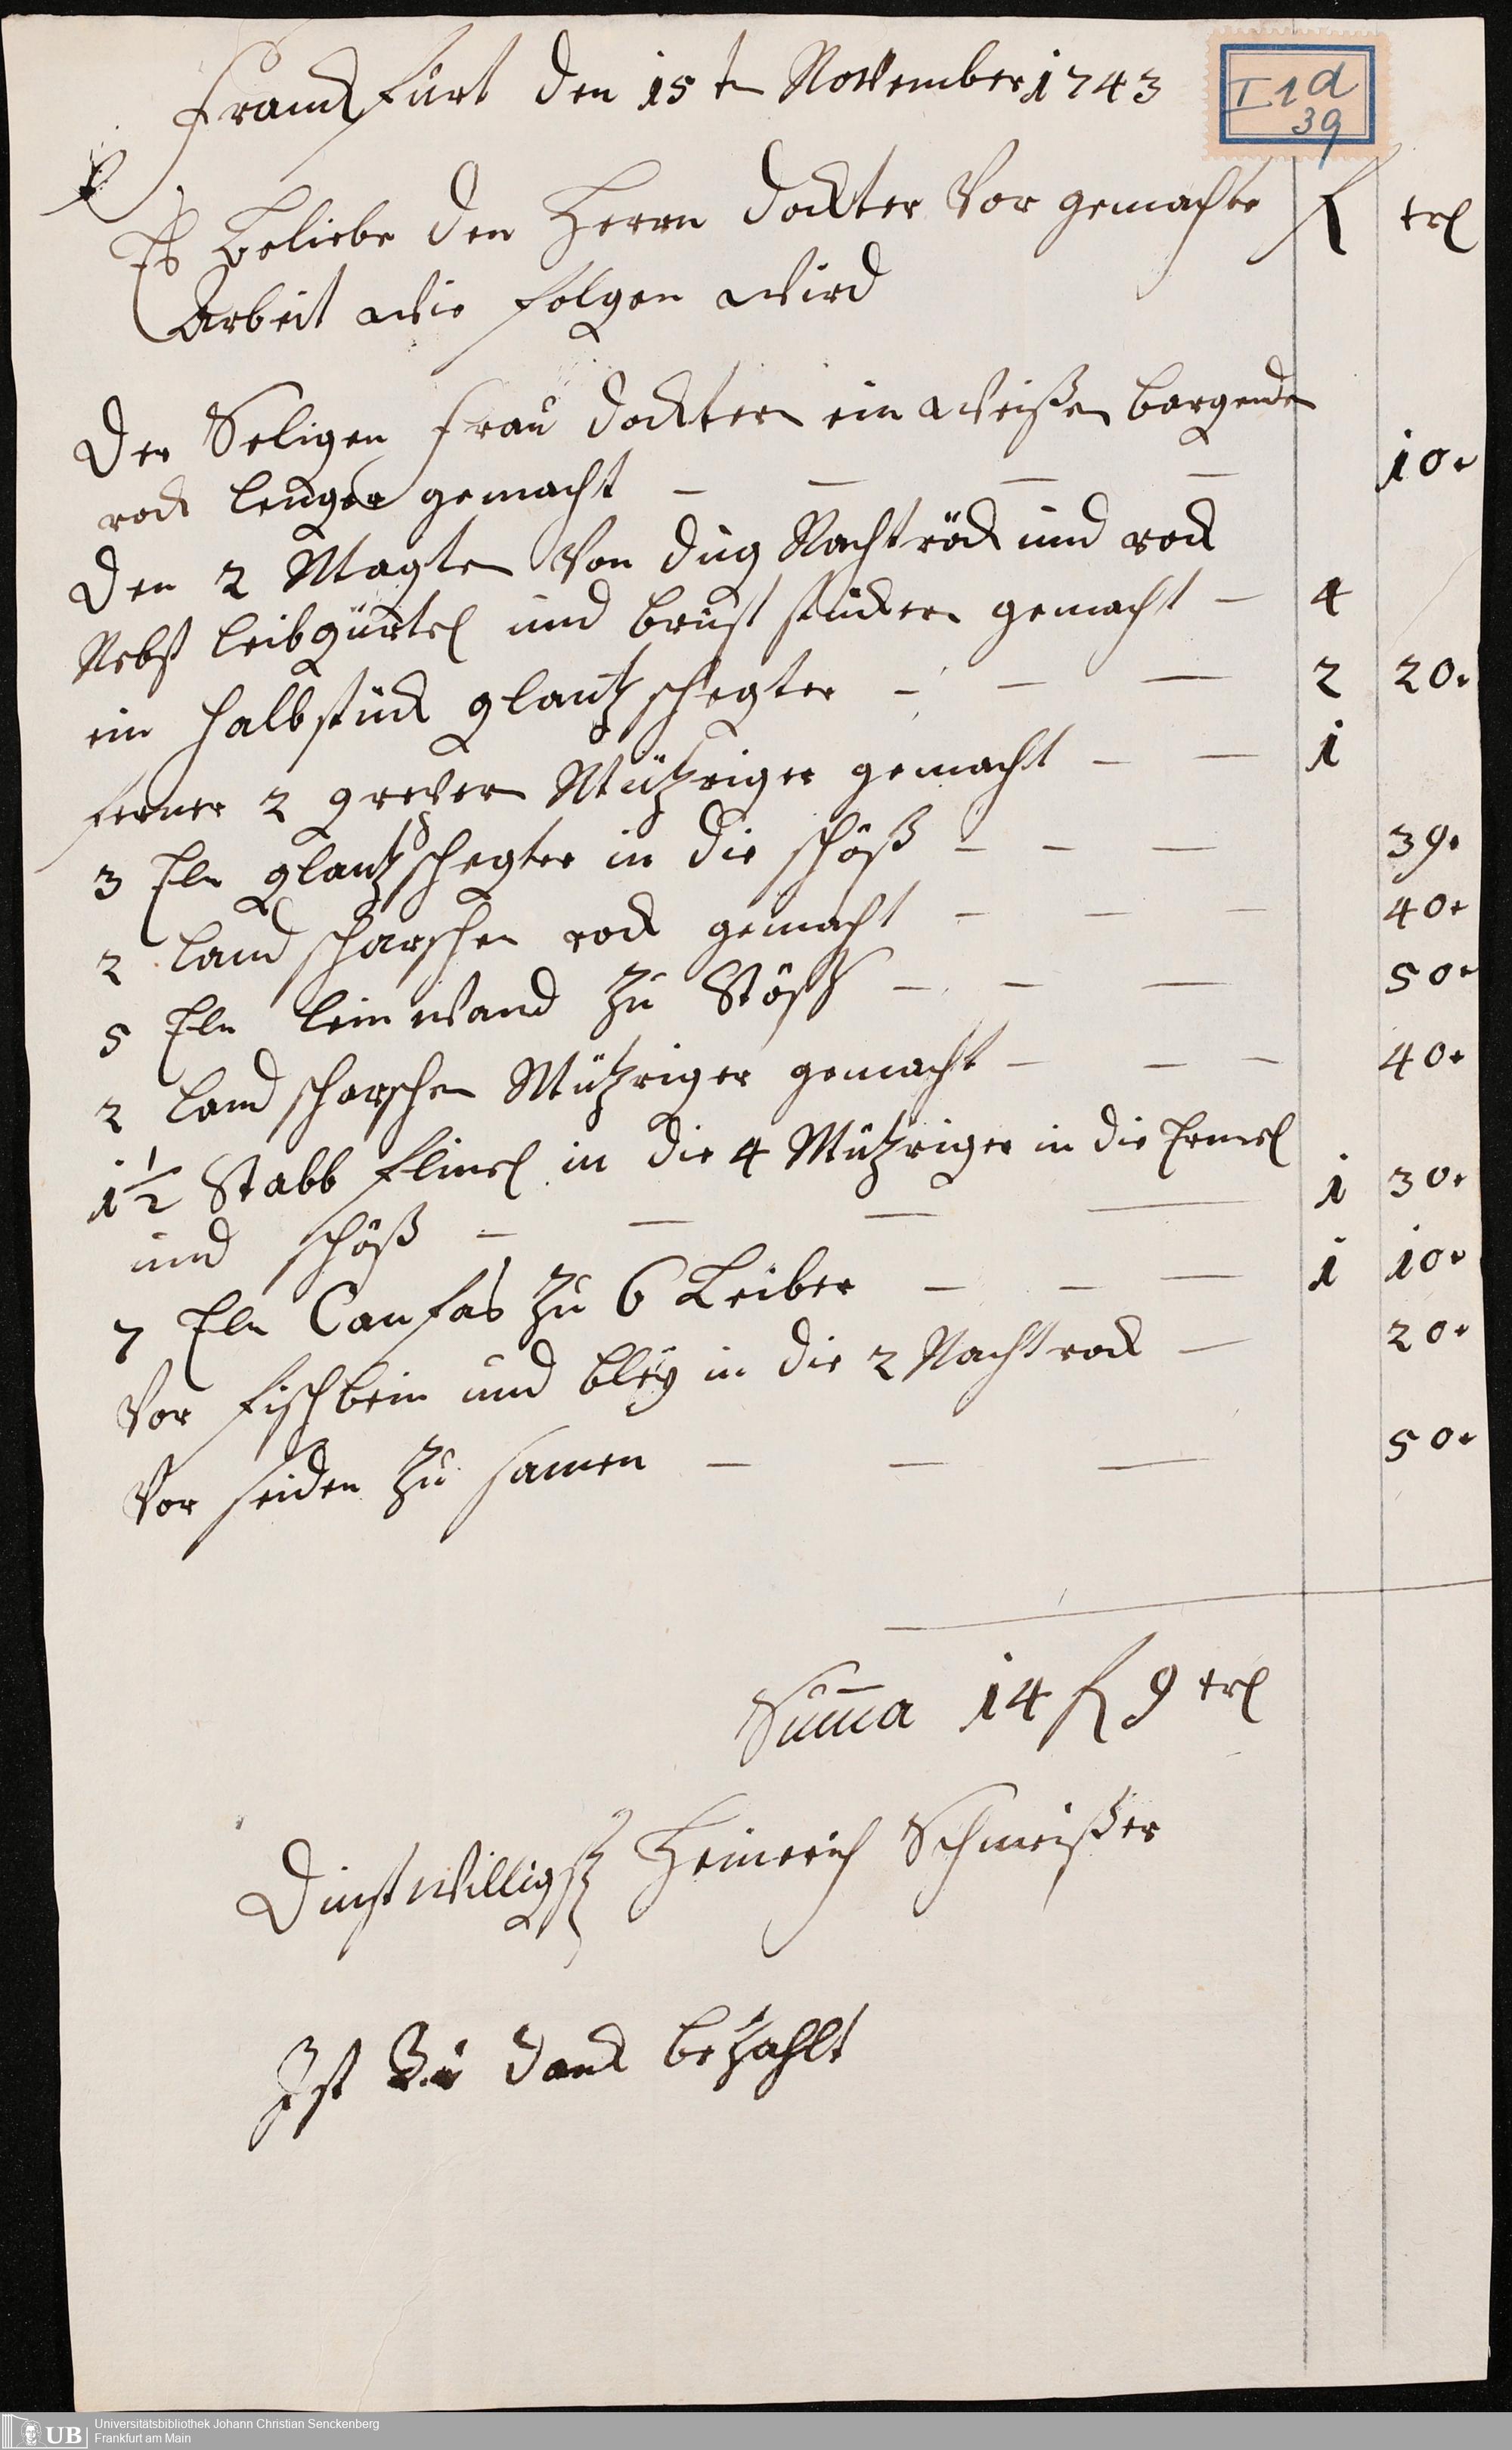 Franckfurt den 15 t November 1743
I 1 d
39
Es beliebe den Herrn dockter Vor gemachte
Arbeit wie folgen wird
fl xrl
Der Seligen frau dockter ein weissen bargende
rock lenger gemacht - - - - 10.
Den 2 Magte Von Zug Nachtröck und rock
Nebst leibgürtel und brust stücker gemacht - 4
ein halbstück glantz schegter - - - 2 20.
ferner 2 grever Mützriger gemacht - - 1
3 Eln glantz schegter in die schöß - - - 39.
2 land scharschen rock gemacht - - - 40.
5 Eln leinwand zu Stöß - - - 50.
2 land scharschen Mützriger gemacht - - - 40.
1½ Stabb flinel in die 4 Mützriger in die Ermel
und schöß - - - - 1 30.
7 Eln Canfas zu 6 Leiber - - - 1 10.
Vor fischbein und bley in die 2 Nachtrock - 20.
Vor seiden zu samen - - - 50.
Summa 14 fl 9 xrl
Dinstwilligst Heinerich Schmeisser
Ist Zu danck bezahlt
UB
Universitätsbibliothek Johann Christian Senckenberg
Frankfurt am Main